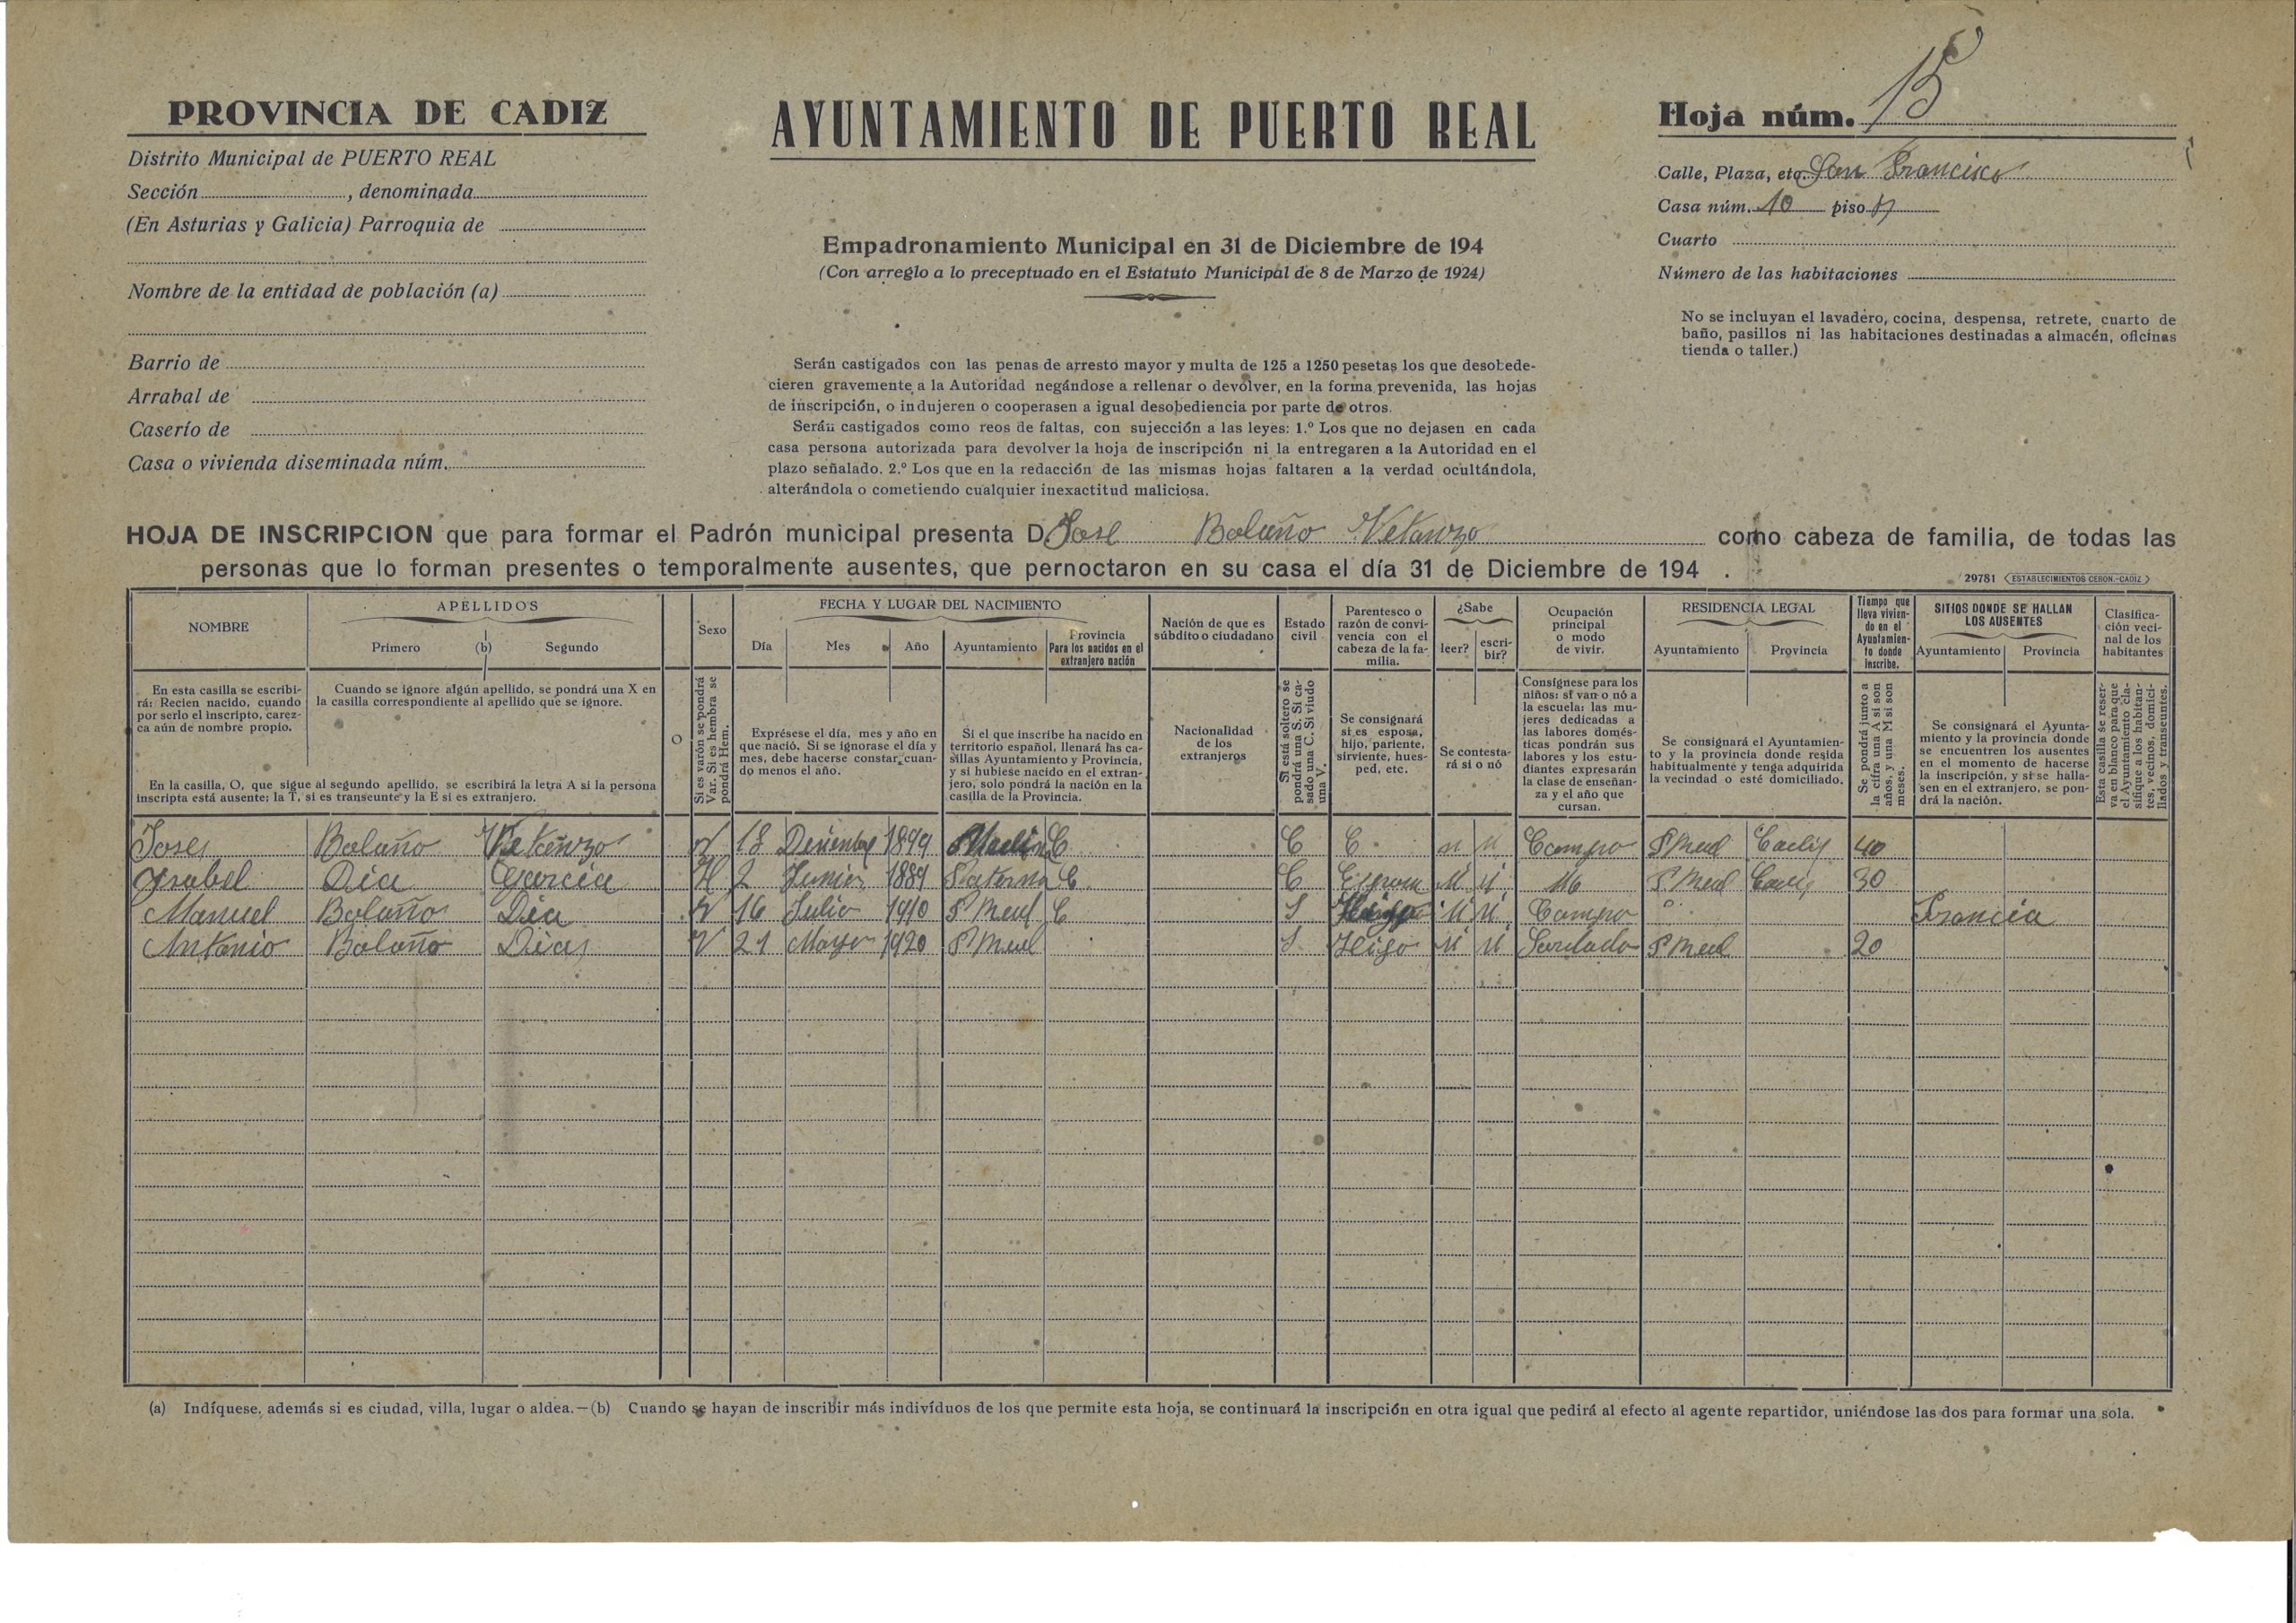 PROVINCIA DE CADIZ
Distrito Municipal de PUERTO REAL
Sección , denominada
(En Asturias y Galicia) Parroquia de
Nombre de la entidad de población (a)
Barrio de
Arrabal de
Caserío de
Casa o vivienda diseminada núm.
AYUNTAMIENTO DE PUERTO REAL
Empadronamiento Municipal en 31 de Diciembre de 194
(Con arreglo a lo preceptuado en el Estatuto Municipal de 8 de Marzo de 1924)
Serán castigados con las penas de arresto mayor y multa de 125 a 1250 pesetas los que desobede-
cieren gravemente a la Autoridad negándose a rellenar o devolver, en la forma prevenida, las hojas
de inscripción, o indujeren o cooperasen a igual desobediencia por parte de otros.
Serán castigados como reos de faltas, con sujección a las leyes: 1.º Los que no dejasen en cada
casa persona autorizada para devolver la hoja de inscripción ni la entregaren a la Autoridad en el
plazo señalado. 2.º Los que en la redacción de las mismas hojas faltaren a la verdad ocultándola,
alterándola o cometiendo cualquier inexactitud maliciosa.
Hoja núm. 15
Calle, Plaza, etc. San Francisco
Casa núm. 10 piso
Cuarto
Número de las habitaciones
No se incluyan el lavadero, cocina, despensa, retrete, cuarto de
baño, pasillos ni las habitaciones destinadas a almacén, oficinas
tienda o taller.)
HOJA DE INSCRIPCION que para formar el Padrón municipal presenta D Jose Bolaño Vetanzo como cabeza de familia, de todas las
personas que lo forman presentes o temporalmente ausentes, que pernoctaron en su casa el día 31 de Diciembre de 194 .
29781 ESTABLECIMIENTOS CERON.-CADIZ
NOMBRE
En esta casilla se escribi-
rá: Recien nacido, cuando
por serlo el inscripto, carez-
ca aún de nombre propio.
APELLIDOS
Primero (b) Segundo
Cuando se ignore algún apellido, se pondrá una X en
la casilla correspondiente al apellido que se ignore.
En la casilla, O, que sigue al segundo apellido, se escribirá la letra A si la persona
inscripta está ausente; la T, si es transeunte y la E si es extranjero.
O
Sexo
Si es varón se pondrá
Var. Si es hembra se
pondrá Hem.
FECHA Y LUGAR DEL NACIMIENTO
Día Mes Año Ayuntamiento
Provincia
Para los nacidos en el
extranjero nación
Exprésese el día, mes y año en
que nació. Si se ignorase el día y
mes, debe hacerse constar, cuan-
do menos el año.
Si el que inscribe ha nacido en
territorio español, llenará las ca-
sillas Ayuntamiento y Provincia,
y si hubiese nacido en el extran-
jero, solo pondrá la nación en la
casilla de la Provincia.
Nación de que es
súbdito o ciudadano
Nacionalidad
de los
extranjeros
Estado
civil
Si está soltero se
pondrá una S. Si ca-
sado una C. Si viudo
una V.
Parentesco o
razón de convi-
vencia con el
cabeza de la fa-
milia.
Se consignará
si es esposa,
hijo, pariente,
sirviente, hues-
ped, etc.
¿Sabe
leer? escri-
bir?
Se contesta-
rá si o nó
Ocupación
principal
o modo
de vivir.
Consígnese para los
niños: si van o nó a
la escuela: las mu-
jeres dedicadas a
las labores domés-
ticas pondrán sus
labores y los estu-
diantes expresarán
la clase de enseñan-
za y el año que
cursan.
RESIDENCIA LEGAL
Ayuntamiento Provincia
Se consignará el Ayuntamien-
to y la provincia donde resida
habitualmente y tenga adquirida
la vecindad o esté domiciliado.
Tiempo que
lleva vivien-
do en el
Ayuntamien-
to donde
inscribe.
Se pondrá junto a
la cifra una A si son
años, y una M si son
meses.
SITIOS DONDE SE HALLAN
LOS AUSENTES
Ayuntamiento Provincia
Se consignará el Ayunta-
miento y la provincia donde
se encuentren los ausentes
en el momento de hacerse
la inscripción, y si se halla-
sen en el extranjero, se pon-
drá la nación.
Clasifica-
ción veci-
nal de los
habitantes
Esta casilla se reser-
va en blanco para que
el Ayuntamiento cla-
sifique a los habitan-
tes, vecinos, domici-
liados y transeuntes.
Jose Bolaño Vetanzo V 18 1899 C C C Campo P Real Cadiz 40
Ysabel Dia Garcia H 2 Junio 1889 Paterna C C Esposa P Real Cadiz 30
Manuel Bolaño Dia V 16 Julio 1910 P Real C S Campo Francia
Antonio Bolaño Dia V 21 Mayo 1920 P Real S Hijo P Real 20
(a) Indíquese, además si es ciudad, villa, lugar o aldea.—(b) Cuando se hayan de inscribir más indivíduos de los que permite esta hoja, se continuará la inscripción en otra igual que pedirá al efecto al agente repartidor, uniéndose las dos para formar una sola.